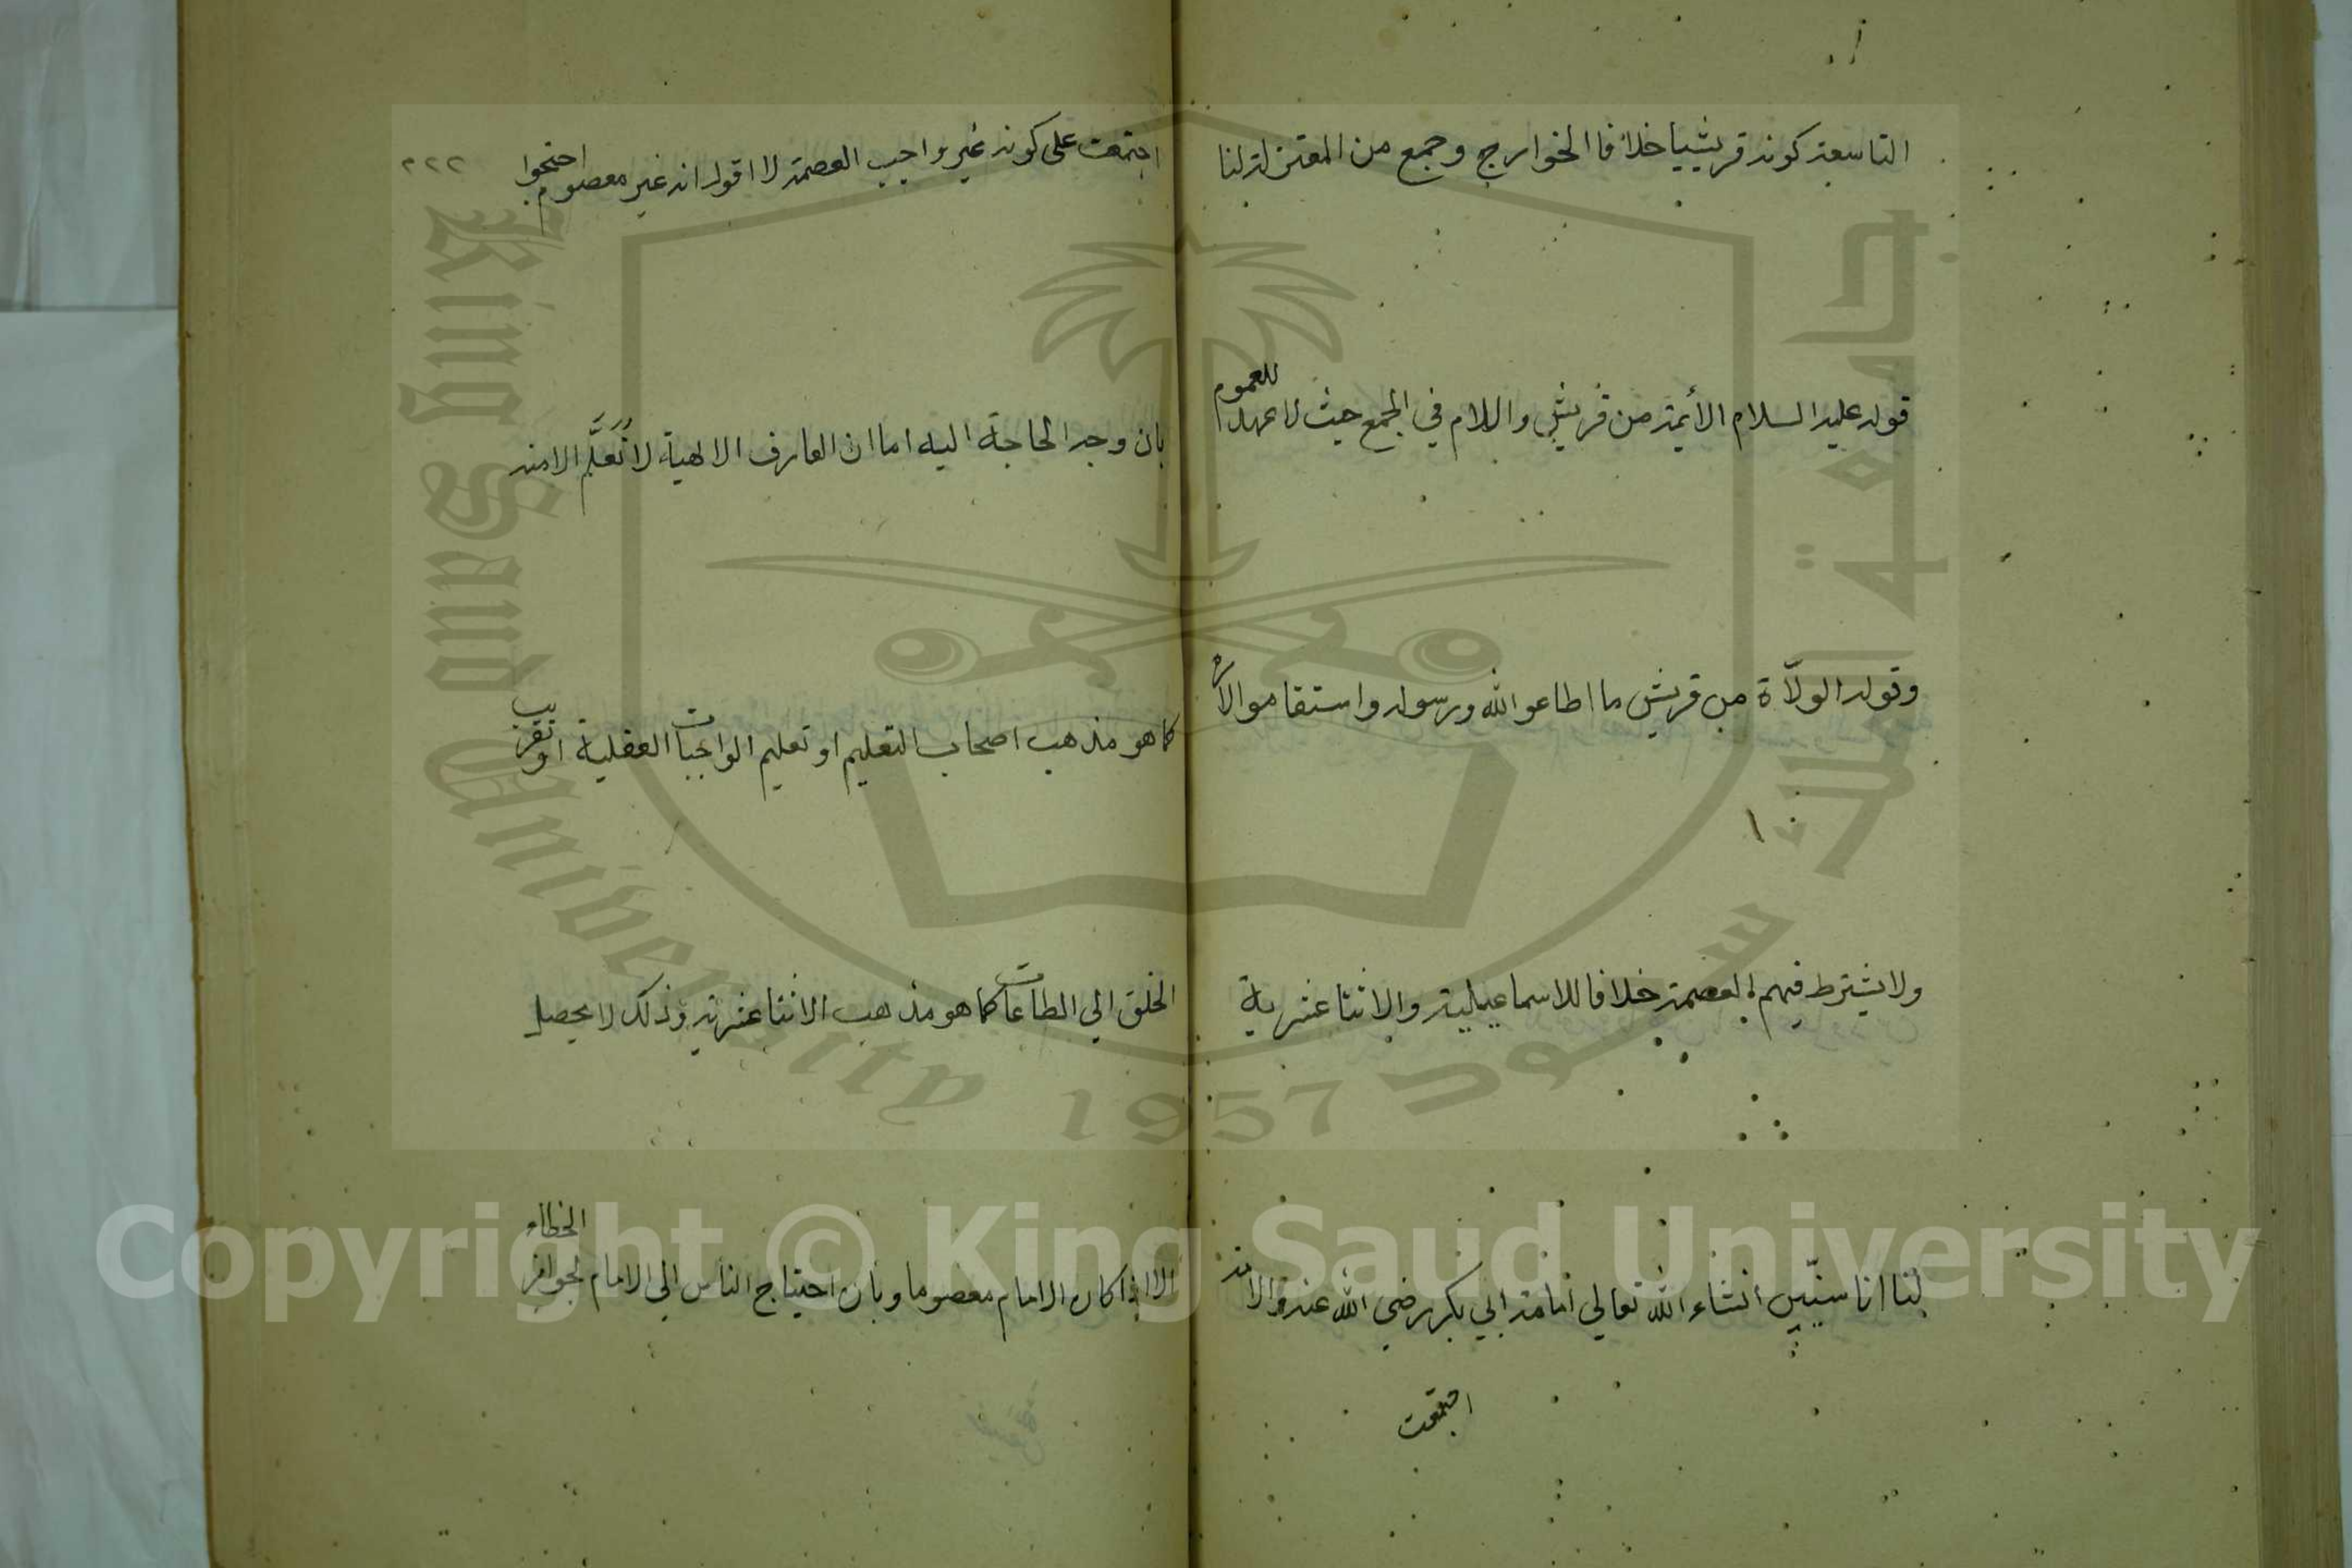 التاسعة كونه قريشيا خلافا الخوارج وجمع من المعتزلة لنا
قوله عليه السلام الأيمة من قريش واللام في الجمع حيث لا عهد للعموم
وقوله الولاة من قريش ما اطاعو الله ورسوله واستقامو الأمره
ولا يشترط فيهم العصمة خلافا للاسماعيلية والاثناعشرية
لنا انا سنبين انشاء الله تعالي امامة ابي بكر رضي الله عنه والامة
اجتمعت
٢٢٢
اجتمعت على كونه غير واجب العصمة لا اقول انه غير معصوم احتجوا
بان وجه الحاجة اليه اما ان المعارف الالهية لا تُعَلَّم الا منه
كما هو مذهب اصحاب التعليم او تعليم الواجبات العقلية او تقريب
الخلق الي الطاعات كما هو مذهب الاثناعشرية وذلك لا يحصل
الا اذا كان الامام معصوما وبان احتياج الناس الي الامام لجواز الخطاء
Copyright © King Saud University
King Saud University 1957
جامعة الملك سعود